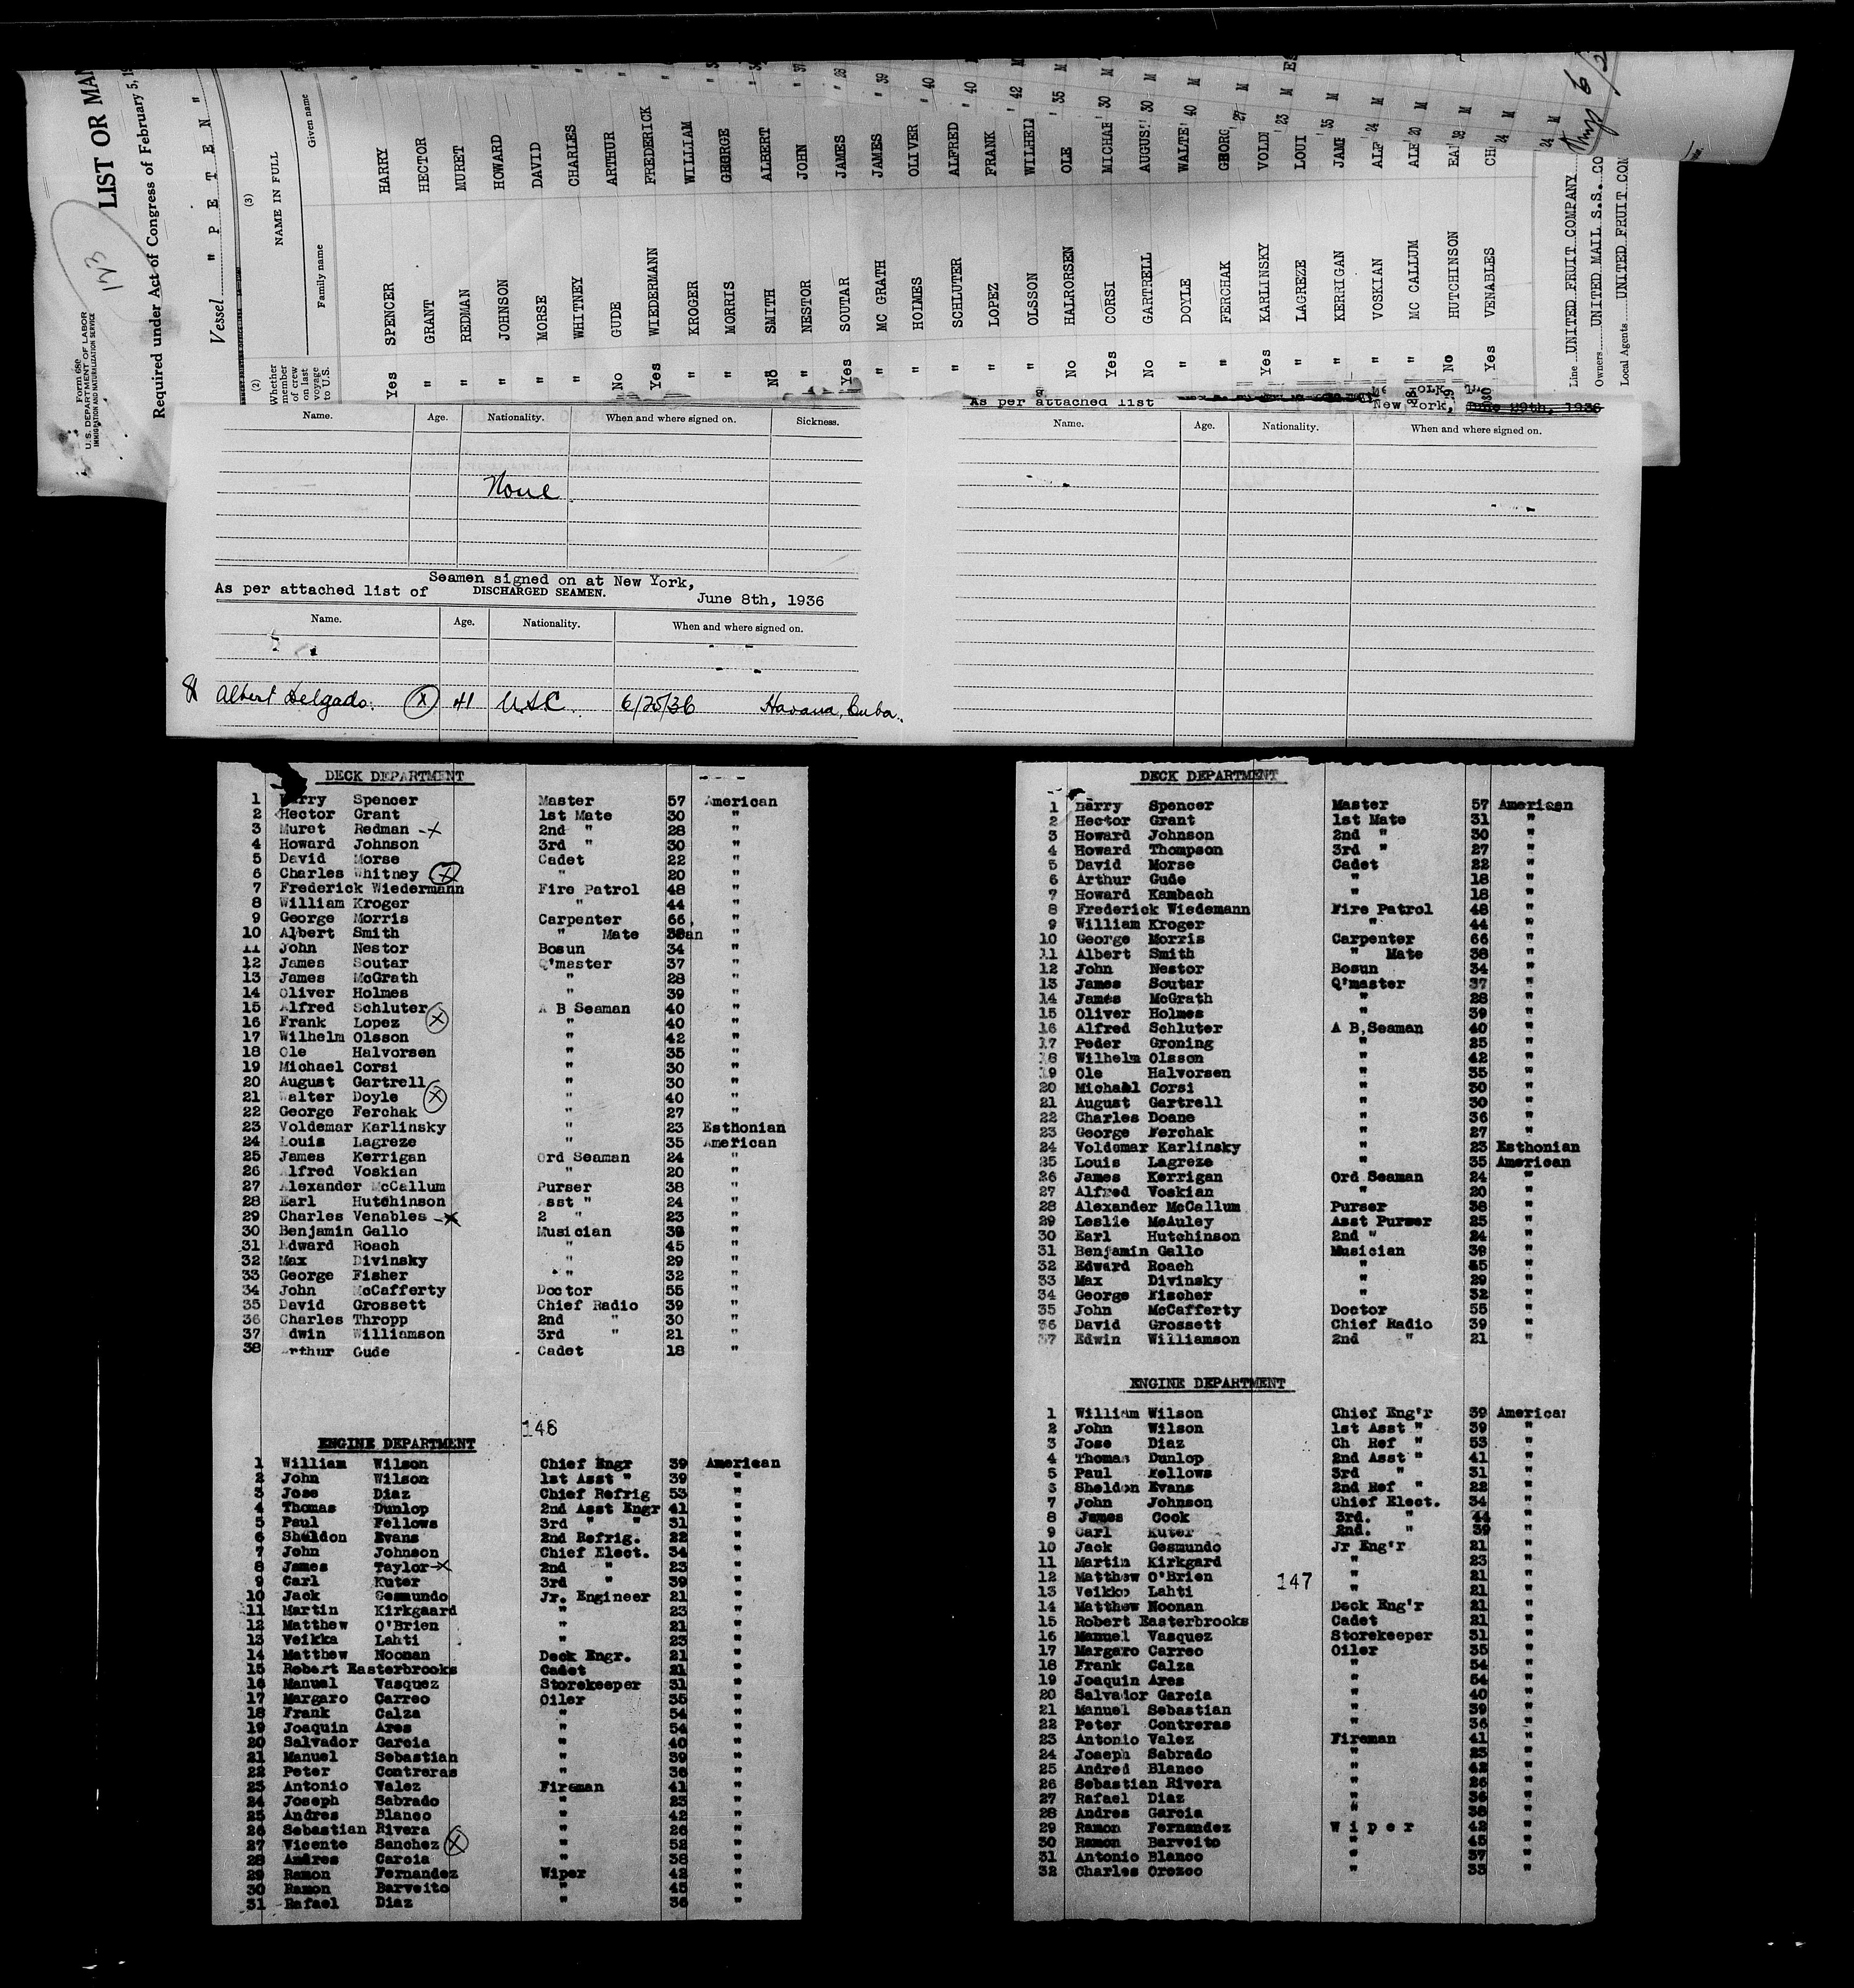 Form 689
U. S. DEPARTMENT OF LABOR
IMMIGRATION AND NATURALIZATION SERVICE
123
LIST OR MAN
Required under Act of Congress of February 5, 19
Vessel " P E T E N "
(2) (3)
Whether member of crew on last voyage to U.S. NAME IN FULL
Family name Given name
Yes SPENCER HARRY
" GRANT HECTOR
" REDMAN MURET
" JOHNSON HOWARD
" MORSE DAVID
" WHITNEY CHARLES
No GUDE ARTHUR
Yes WIEDERMANN FREDERICK
" KROGER WILLIAM
" MORRIS GEORGE
No SMITH ALBERT
" NESTOR JOHN
Yes SOUTAR JAMES
" MC GRATH JAMES
" HOLMES OLIVER
" SCHLUTER ALFRED
" LOPEZ FRANK
" OLSSON WILHELM
No HALRORSEN OLE
Yes CORSI MICHAE
No GARTRELL AUGUS
" DOYLE WALTE
" FERCHAK GEORG
Yes KARLINSKY VOLD
" LAGREZE LOUI
" KERRIGAN JAM
" VOSKIAN ALF
" MC CALLUM ALE
No HUTCHINSON EA
Yes VENABLES CH
Line UNITED FRUIT COMPANY
Owners UNITED MAIL S.S. CO
Local Agents UNITED FRUIT COM
Name. Age. Nationality. When and where signed on. Sickness.
None
Seamen signed on at New York,
As per attached list of DISCHARGED SEAMEN. June 8th, 1936
Name. Age. Nationality. When and where signed on.
Albert Delgado. X 41 U.S.C. 6/25/36 Havana, Cuba.
As per attached list New York, June 29th, 1936
Name. Age. Nationality. When and where signed on.
DECK DEPARTMENT
1 Harry Spencer Master 57 American
2 Hector Grant 1st Mate 30 "
3 Muret Redman -x 2nd " 28 "
4 Howard Johnson 3rd " 30 "
5 David Morse Cadet 22 "
6 Charles Whitney X " 20 "
7 Frederick Wiedermann Fire Patrol 48 "
8 William Kroger " 44 "
9 George Morris Carpenter 66 "
10 Albert Smith " Mate "
11 John Nestor Bosun 34 "
12 James Soutar Q'master 37 "
13 James McGrath " 28 "
14 Oliver Holmes " 39 "
15 Alfred Schluter A B Seaman 40 "
16 Frank Lopez X " 40 "
17 Wilhelm Olsson " 42 "
18 Ole Halvorsen " 35 "
19 Michael Corsi " 30 "
20 August Gartrell " 30 "
21 Walter Doyle X " 40 "
22 George Ferchak " 27 "
23 Voldemar Karlinsky " 23 Esthonian
24 Louis Lagreze " 35 American
25 James Kerrigan Ord Seaman 24 "
26 Alfred Voskian " 20 "
27 Alexander McCallum Purser 38 "
28 Earl Hutchinson Asst " 24 "
29 Charles Venables -x 2 " 23 "
30 Benjamin Gallo Musician 39 "
31 Edward Roach " 45 "
32 Max Divinsky " 29 "
33 George Fisher " 32 "
34 John McCafferty Doctor 55 "
35 David Grossett Chief Radio 39 "
36 Charles Thropp 2nd " 30 "
37 Edwin Williamson 3rd " 21 "
38 Arthur Gude Cadet 18 "
146
ENGINE DEPARTMENT
1 William Wilson Chief Engr 39 American
2 John Wilson 1st Asst " 39 "
3 Jose Diaz Chief Refrig 53 "
4 Thomas Dunlop 2nd Asst Engr 41 "
5 Paul Fellows 3rd " " 31 "
6 Sheldon Evans 2nd Refrig. 22 "
7 John Johnson Chief Elect. 34 "
8 James Taylor-x 2nd " 23 "
9 Carl Kuter 3rd " 39 "
10 Jack Gesmundo Jr. Engineer 21 "
11 Martin Kirkgaard " 23 "
12 Matthew O'Brien " 21 "
13 Veikka Lahti " 23 "
14 Matthew Noonan Deck Engr. 21 "
15 Robert Easterbrooks Cadet 21 "
16 Manuel Vasquez Storekeeper 31 "
17 Margaro Carreo Oiler 35 "
18 Frank Calza " 54 "
19 Joaquin Ares " 54 "
20 Salvador Garcia " 40 "
21 Manuel Sebastian " 39 "
22 Peter Contreras " 36 "
23 Antonio Valez Fireman 41 "
24 Joseph Sabrado " 23 "
25 Andres Blanco " 42 "
26 Sebastian Rivera " 26 "
27 Vicente Sanchez X " 52 "
28 Andres Garcia " 38 "
29 Ramon Fernandez Wiper 42 "
30 Ramon Barveito " 45 "
31 Rafael Diaz " 36 "
DECK DEPARTMENT
1 Harry Spencer Master 57 American
2 Hector Grant 1st Mate 31 "
3 Howard Johnson 2nd " 30 "
4 Howard Thompson 3rd " 27 "
5 David Morse Cadet 22 "
6 Arthur Gude " 18 "
7 Howard Kambach " 18 "
8 Frederick Wiedemann Fire Patrol 48 "
9 William Kroger " 44 "
10 George Morris Carpenter 66 "
11 Albert Smith " Mate 38 "
12 John Nestor Bosun 34 "
13 James Soutar Q'master 37 "
14 James McGrath " 28 "
15 Oliver Holmes " 39 "
16 Alfred Schluter A B,Seaman 40 "
17 Peder Groning " 25 "
18 Wilhelm Olsson " 42 "
19 Ole Halvorsen " 35 "
20 Michael Corsi " 30 "
21 August Gartrell " 30 "
22 Charles Doane " 36 "
23 George Ferchak " 27 "
24 Voldemar Karlinsky " 23 Esthonian
25 Louis Lagreze " 35 American
26 James Kerrigan Ord Seaman 24 "
27 Alfred Voskian " 20 "
28 Alexander McCallum Purser 38 "
29 Leslie McAuley Asst Purser 25 "
30 Earl Hutchinson 2nd " 24 "
31 Benjamin Gallo Musician 39 "
32 Edward Roach " "
33 Max Divinsky " 29 "
34 George Fischer " 32 "
35 John McCafferty Doctor 55 "
36 David Grossett Chief Radio 39 "
37 Edwin Williamson 2nd " 21 "
ENGINE DEPARTMENT
1 William Wilson Chief Eng'r 39 American
2 John Wilson 1st Asst " 39 "
3 Jose Diaz Ch Ref " 53 "
4 Thomas Dunlop 2nd Asst " 41 "
5 Paul Fellows 3rd " 31 "
6 Sheldon Evans 2nd Ref " 22 "
7 John Johnson Chief Elect. 34 "
8 James Cook 3rd. " 44 "
9 Carl Kuter 2nd. " 39 "
10 Jack Gesmundo Jr Eng'r 21 "
11 Martin Kirkgard " 23 "
12 Matthew O'Brien " 21 "
147
13 Veikko Lahti " 21 "
14 Matthew Noonan Deck Eng'r 21 "
15 Robert Easterbrooks Cadet 21 "
16 Manuel Vasquez Storekeeper 31 "
17 Margaro Carreo Oiler 35 "
18 Frank Calza " 54 "
19 Joaquin Ares " 54 "
20 Salvador Garcia " 40 "
21 Manuel Sebastian " 39 "
22 Peter Contreras " 36 "
23 Antonio Valez Fireman 41 "
24 Joseph Sabrado " 23 "
25 Andred Blanco " 42 "
26 Sebastian Rivera " 26 "
27 Rafael Diaz " 36 "
28 Andres Garcia " 38 "
29 Ramon Fernandez W i p e r 42 "
30 Ramon Barveito " 45 "
31 Antonio Blanco " 37 "
32 Charles Orozco " 33 "